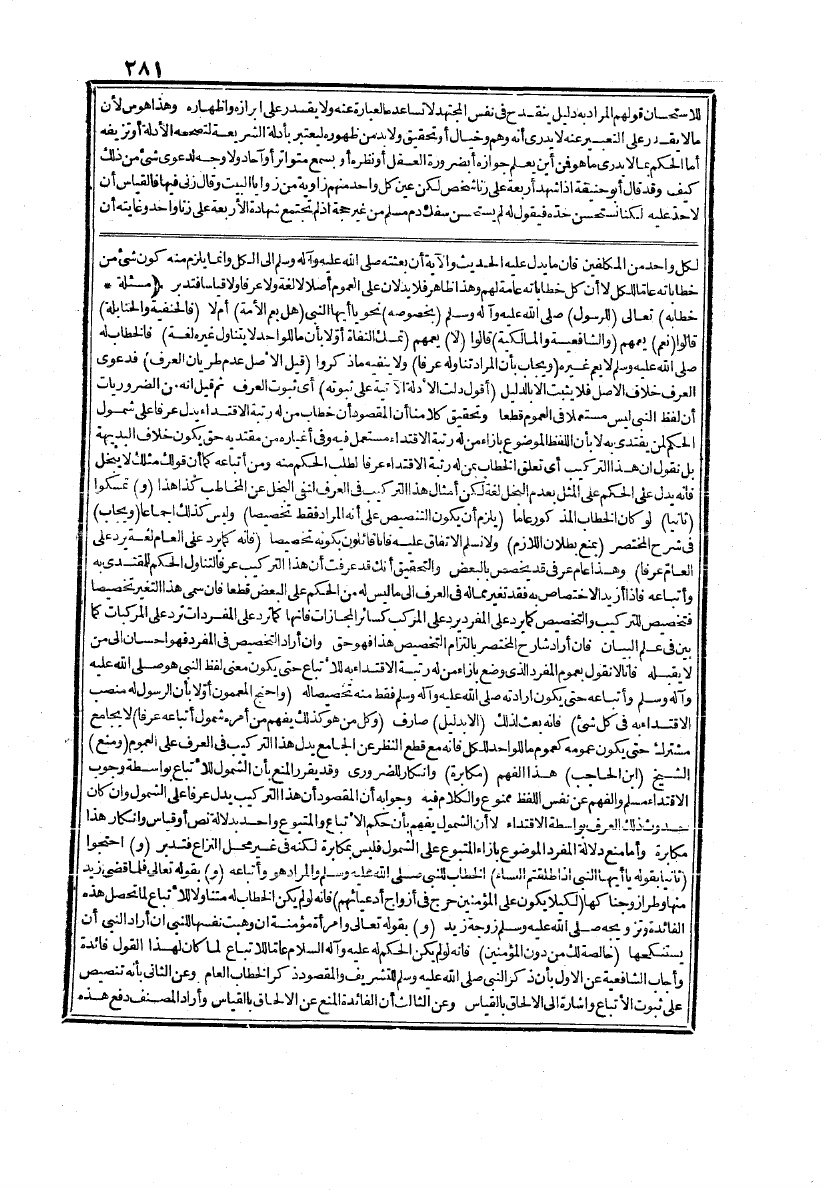 ٢٨١
للاستحسان قولهم المراد به دليل ينقدح في نفس المجتهد لا تساعده العبارة عنه ولا يقدر على ابرازه واظهاره وهذا هوس لأن
مالا يقدر على التعبير عنه لا يدرى أنه وهم وخيال أو تحقيق ولا بد من ظهوره ليعتبر بأدلة الشريعة لتصححه الأدلة أو تزيفه
أما الحكم بما لا يدرى ما هو فمن أين يعلم جوازه أبضرورة العقل أو نظره أو بسمع متواتر أو آحاد ولا وجه لدعوى شئ من ذلك
كيف وقد قال أبو حنيفة اذا شهد أربعة على زنا شخص لكن عين كل واحد منهم زاوية من زوايا البيت وقال زنى فيها فالقياس أن
لا حد عليه لكنا نستحسن حده فيقول له لم يستحسن سفك دم مسلم من غير حجة اذ لم تجتمع شهادة الأربعة على زنا واحد وغايته أن
لكل واحد من المكلفين فان ما يدل عليه الحديث والآية أن بعثته صلى الله عليه وآله وسلم إلى الكل وانما يلزم منه كون شئ من
خطاباته عاما للكل لا أن كل خطاباته عامة لهم وهذا ظاهر فلا يدلان على العموم أصلا لا لغة ولا عرفا ولا قياسا فتدبر ﴿مسئلة *
خطابه﴾ تعالى (للرسول) صلى الله عليه وآله وسلم (بخصوصه) نحو يا أيها النبي (هل يعم الأمة) أم لا (فالحنفية والحنابلة)
قالوا (نعم) يعمهم (والشافعية والمالكية) قالوا (لا) يعمهم (تمسك النفاة أولا بأن ما للواحد لا يتناول غيره لغة) فالخطاب له
صلى الله عليه وسلم لا يعم غيره (ويجاب بأن المراد تناوله عرفا) ولا ينفيه ما ذكروا (قيل الأصل عدم طريان العرف) فدعوى
العرف خلاف الاصل فلا يثبت الا بالدليل (أقول دلت الأدلة الآتية على ثبوته) أى ثبوت العرف ثم قيل انه من الضروريات
أن لفظ النبي ليس مستعملا في العموم قطعا وتحقيق كلامنا أن المقصود أن خطاب من له رتبة الاقتداء يدل عرفا على شمول
الحكم لمن يقتدى به لا بأن اللفظ الموضوع بازاء من له رتبة الاقتداء مستعمل فيه وفي أغياره من مقتديه حتى يكون خلاف البديهة
بل نقول ان هذا التركيب أى تعلق الخطاب بمن له رتبة الاقتداء عرفا لطلب الحكم منه ومن أتباعه كما أن قولك مثلك لا يبخل
فانه يدل على الحكم على المثل بعدم البخل لغة لكن أمثال هذا التركيب في العرف لنفي البخل عن المخاطب كذا هذا (و) تمسكوا
(ثانيا) لو كان الخطاب المذكور عاما (يلزم أن يكون التنصيص على أنه المراد فقط تخصيصا) وليس كذلك اجماعا (ويجاب)
في شرح المختصر (بمنع بطلان اللازم) ولا نسلم الاتفاق عليه فانا قائلون بكونه تخصيصا (فانه كما يرد على العام لغة يرد على
العام عرفا) وهذا عام عرفي قد يخصص بالبعض والتحقيق أنك قد عرفت أن هذا التركيب عرفا لتناول الحكم للمقتدى به
وأتباعه فاذا أريد الاختصاص به فقد تغير عما له في العرف الى ما ليس له من الحكم على البعض قطعا فان سمى هذا التغير تخصيصا
فتخصيص للتركيب والتخصيص كما يرد على المفرد يرد على المركب كسائر المجازات فانها كما ترد على المفردات ترد على المركبات كما
بين في علم البيان فان أراد شارح المختصر بالتزام التخصيص هذا فهو حق وان أراد التخصيص في المفرد فهو احسان الى من
لا يقبله فانا لا نقول بعموم المفرد الذى وضع بازاء من له رتبة الاقتداء به للأتباع حتى يكون معنى لفظ النبي هو صلى الله عليه
وآله وسلم وأتباعه حتى يكون ارادته صلى الله عليه وآله وسلم فقط منه تخصيصا له (واحتج المعممون أولا بأن الرسول له منصب
الاقتداء به في كل شئ) فانه بعث لذلك (الا بدليل) صارف (وكل من هو كذلك يفهم من أمره شمول أتباعه عرفا) لا بجامع
مشترك حتى يكون عمومه كعموم ما للواحد للكل فانه مع قطع النظر عن الجامع يدل هذا التركيب في العرف على العموم (ومنع)
الشيخ (ابن الحاجب) هذا الفهم (مكابرة) وانكار للضرورى وقد يقرر المنع بأن الشمول للأتباع بواسطة وجوب
الاقتداء مسلم والفهم عن نفس اللفظ ممنوع والكلام فيه وجوابه أن المقصود أن هذا التركيب يدل عرفا على الشمول وان كان
حدوث ذلك العرف بواسطة الاقتداء لا أن الشمول يفهم بأن حكم الأتباع والمتبوع واحد بدلالة نص أو قياس وانكار هذا
مكابرة وأما منع دلالة المفرد الموضوع بازاء المتبوع على الشمول فليس بمكابرة لكنه في غير محل النزاع فتدبر (و) احتجوا
(ثانيا بقوله يا أيها النبي اذا طلقتم النساء) الخطاب للنبي صلى الله عليه وسلم والمراد هو وأتباعه (و) بقوله تعالى فلما قضى زيد
منها وطرا زوجناكها (لكيلا يكون على المؤمنين حرج في أزواج أدعيائهم) فانه لو لم يكن الخطاب له متناولا للأتباع لما تحصل هذه
الفائدة وتزويجه صلى الله عليه وسلم زوجة زيد (و) بقوله تعالى وامرأة مؤمنة ان وهبت نفسها للنبي ان أراد النبي أن
يستنكحها (خالصة لك من دون المؤمنين) فانه لو لم يكن الحكم له عليه وآله السلام عاما للأتباع لما كان لهذا القول فائدة
وأجاب الشافعية عن الاول بأن ذكر النبي صلى الله عليه وسلم للتشريف والمقصود ذكر الخطاب العام وعن الثاني بأنه تنصيص
على ثبوت الأتباع واشارة الى الالحاق بالقياس وعن الثالث أن الفائدة المنع عن الالحاق بالقياس وأراد المصنف دفع هذه